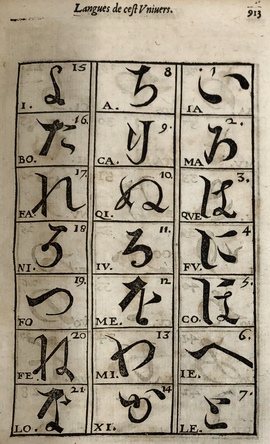 Langues de ceſt Vnivers.
913
い
IA
2.
ろ
MA
3.
は
QVE
4
に
FV.
5.
ほ
CO.
6.
へ
IE.
7.
と
LE.
8
ち
A.
9.
り
CA.
10.
ぬ
QI.
11.
る
IV.
12
を
ME.
13
わ
MI.
14
か
XI.
15
よ
I.
16.
た
BO.
17
れ
FA.
18
NI.
19.
つ
FO
20
ね
FE.
21
な
LO.